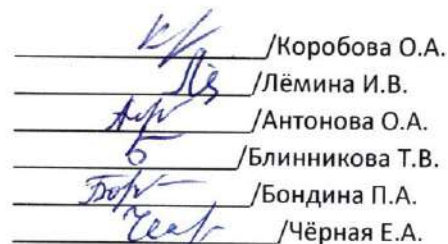 /Коробова О.А.
/Лёмина И.В.
/Антонова О.А.
/Блинникова Т.В.
/Бондина П.А.
/Чёрная Е.А.